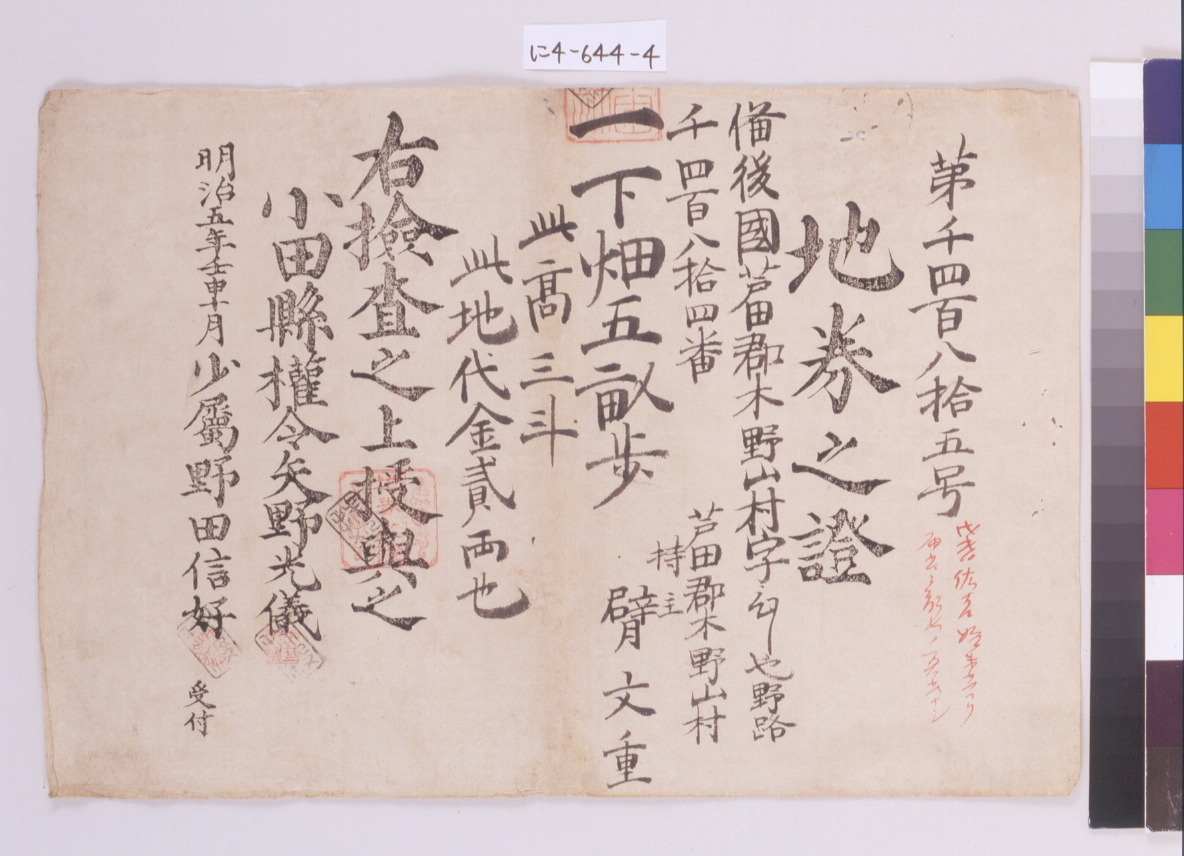 に4-644-4
第千四百八拾五号
地券之證
備後國芦田郡木野山村字 や野路
千四百八拾四番
芦田郡木野山村
持主
臂文重
一下畑五畝歩
此高三斗
此地代金貳両也
右撿査之上授與之
小田縣權令矢野光儀
明治五年壬申十月少屬野田信好
受付